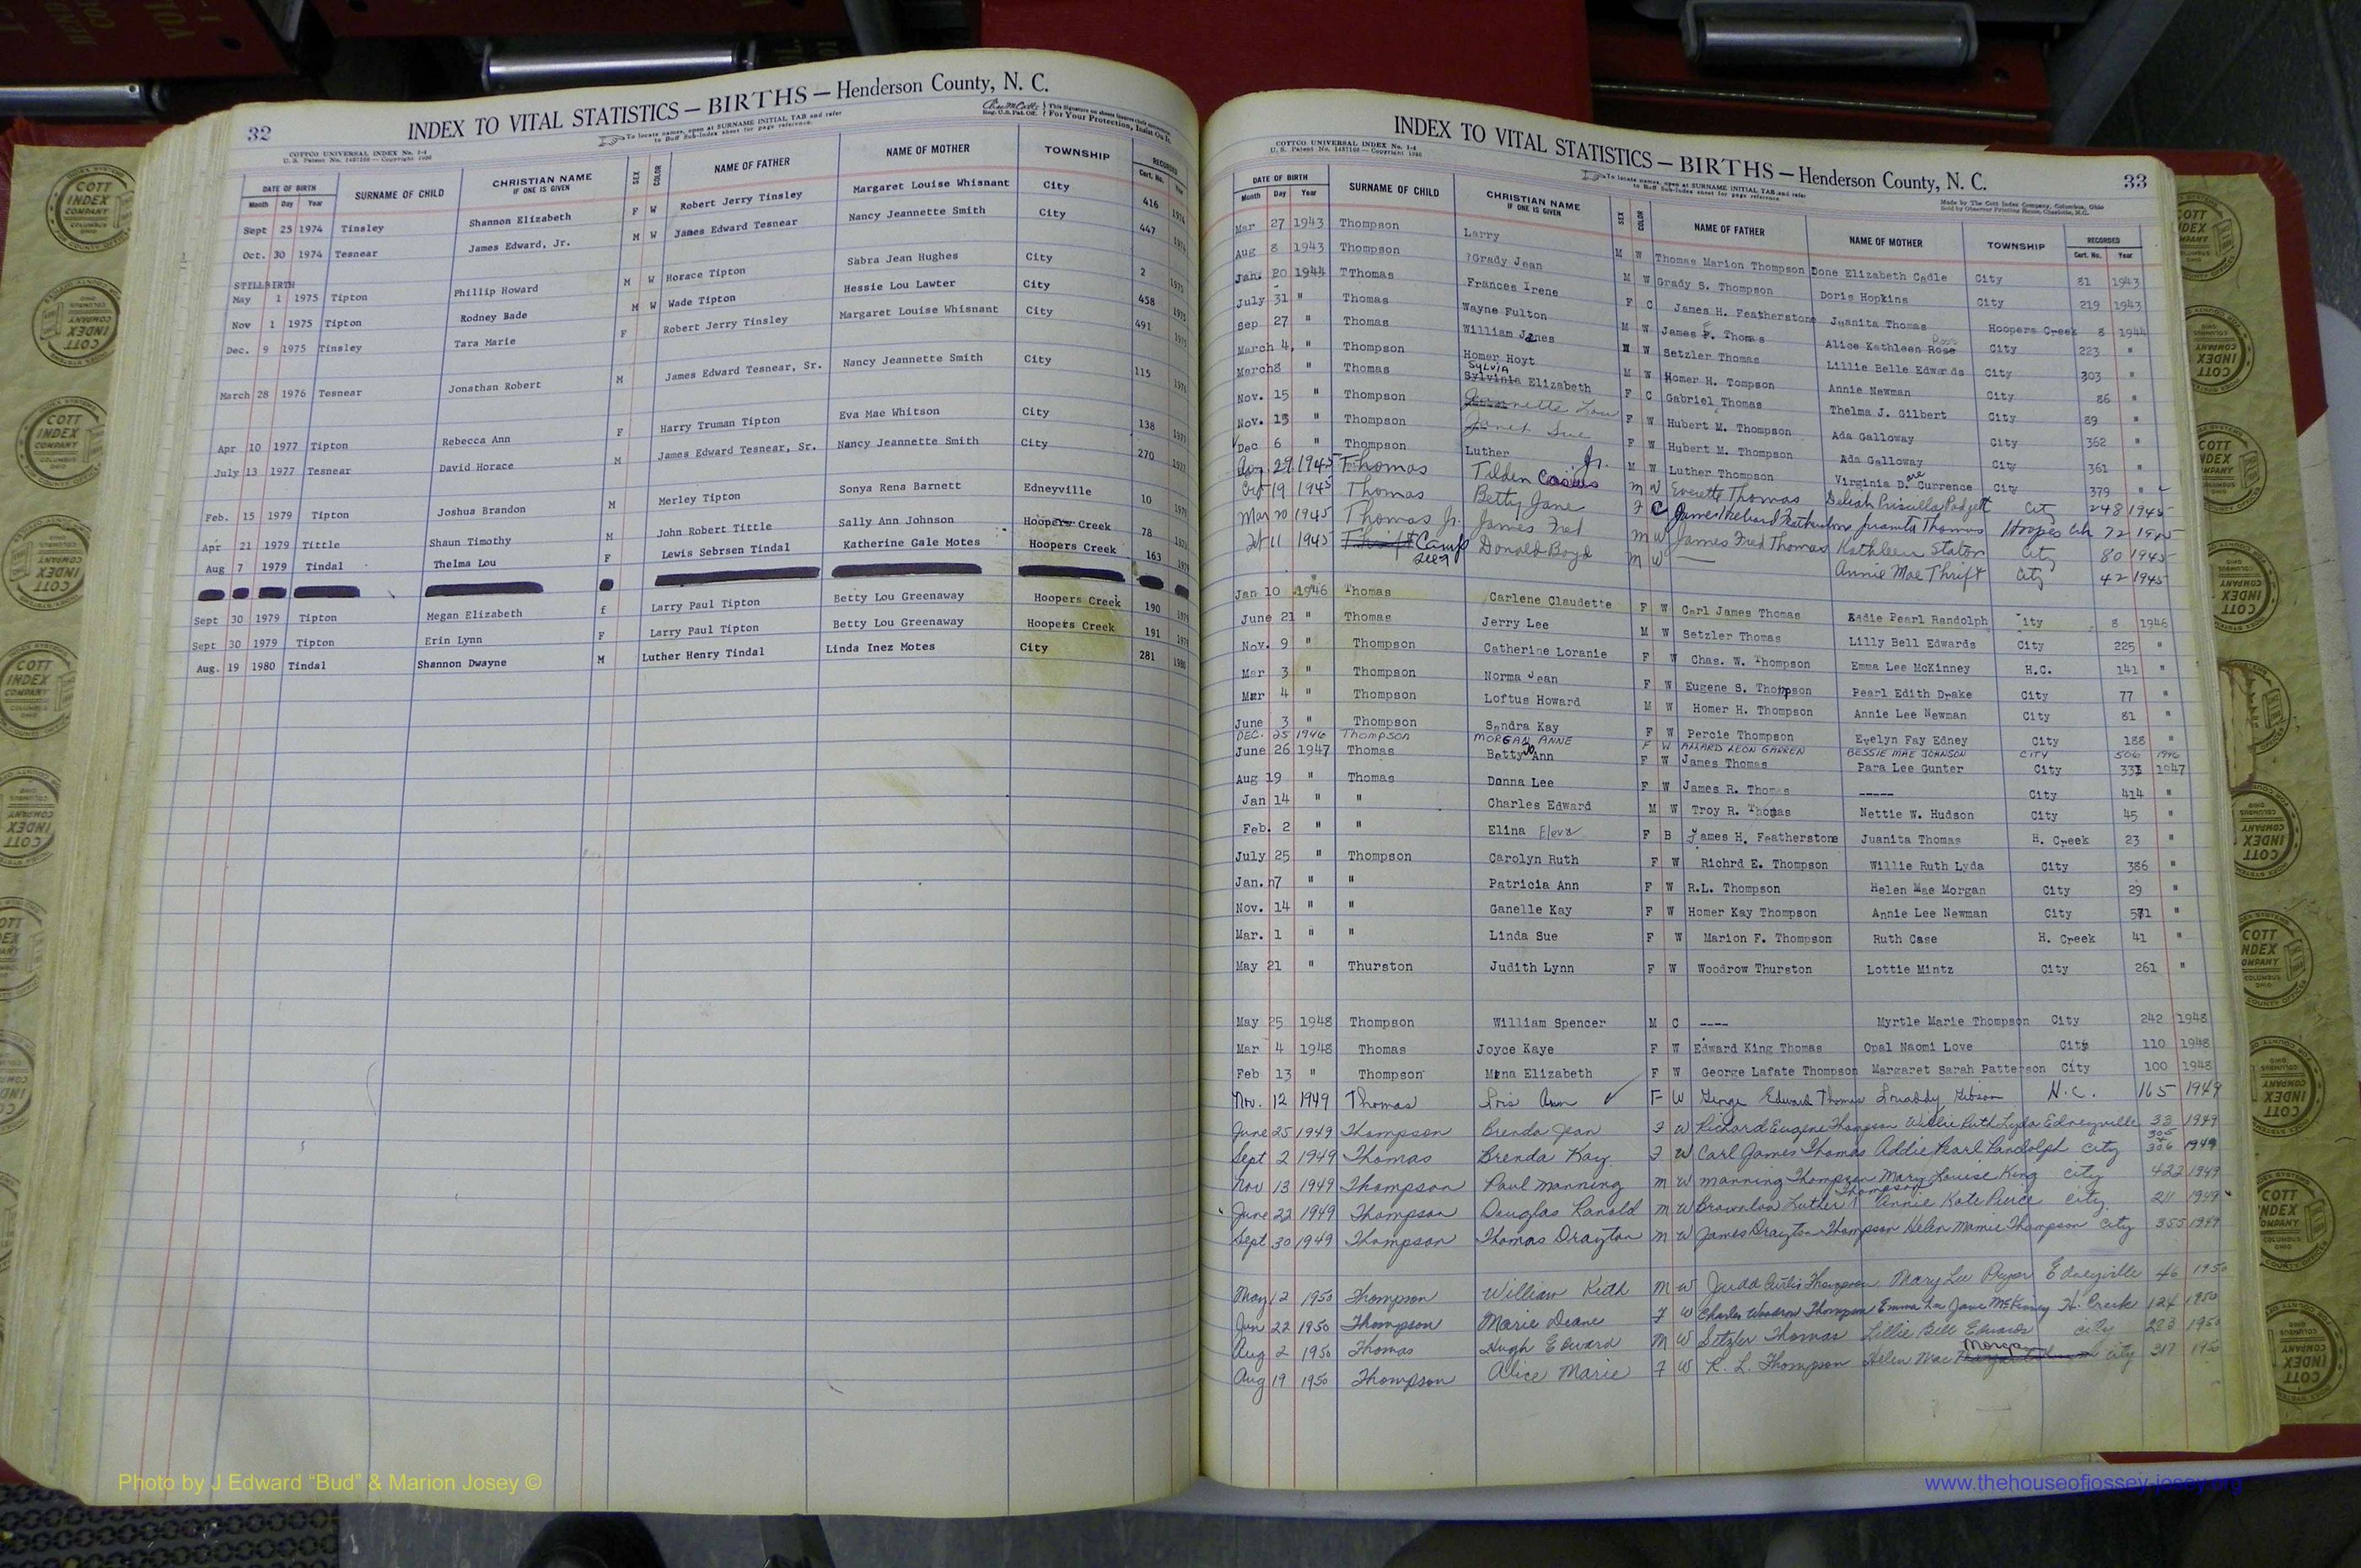 32
INDEX TO VITAL STATISTICS — BIRTHS — Henderson County, N. C.
COTTCO UNIVERSAL INDEX No. 1-4
U. S. Patent No. 1457168 — Copyright 1930
To locate names, open at SURNAME INITIAL TAB and refer
to Buff Sub-Index sheet for page reference.
Reg. U.S. Pat. Off.
For Your Protection, Insist On It.
DATE OF BIRTH SURNAME OF CHILD CHRISTIAN NAME IF ONE IS GIVEN SEX COLOR NAME OF FATHER NAME OF MOTHER TOWNSHIP RECORDED
Month Day Year Cert. No. Year
Sept 25 1974 Tinsley Shannon Elizabeth F W Robert Jerry Tinsley Margaret Louise Whisnant City 416 1974
Oct. 30 1974 Tesnear James Edward, Jr. M W James Edward Tesnear Nancy Jeannette Smith City 447 1974
STILLBIRTH
May 1 1975 Tipton Phillip Howard M W Horace Tipton Sabra Jean Hughes City 2 1975
Nov 1 1975 Tipton Rodney Bade M W Wade Tipton Hessie Lou Lawter City 458 1975
Dec. 9 1975 Tinsley Tara Marie F Robert Jerry Tinsley Margaret Louise Whisnant City 491 1975
March 28 1976 Tesnear Jonathan Robert M James Edward Tesnear, Sr. Nancy Jeannette Smith City 115 1976
Apr 10 1977 Tipton Rebecca Ann F Harry Truman Tipton Eva Mae Whitson City 138 1977
July 13 1977 Tesnear David Horace M James Edward Tesnear, Sr. Nancy Jeannette Smith City 270 1977
Feb. 15 1979 Tipton Joshua Brandon M Merley Tipton Sonya Rena Barnett Edneyville 10 1979
Apr 21 1979 Tittle Shaun Timothy M John Robert Tittle Sally Ann Johnson Hoopers Creek 78 1979
Aug 7 1979 Tindal Thelma Lou F Lewis Sebrsen Tindal Katherine Gale Motes Hoopers Creek 163 1979
Sept 30 1979 Tipton Megan Elizabeth f Larry Paul Tipton Betty Lou Greenaway Hoopers Creek 190 1979
Sept 30 1979 Tipton Erin Lynn F Larry Paul Tipton Betty Lou Greenaway Hoopers Creek 191 1979
Aug. 19 1980 Tindal Shannon Dwayne M Luther Henry Tindal Linda Inez Motes City 281 1980
INDEX TO VITAL STATISTICS — BIRTHS — Henderson County, N. C.
33
COTTCO UNIVERSAL INDEX No. 1-4
U. S. Patent No. 1457168 — Copyright 1930
To locate names, open at SURNAME INITIAL TAB and refer
to Buff Sub-Index sheet for page reference.
Made by The Cott Index Company, Columbus, Ohio
Sold by Observer Printing House, Charlotte, N.C.
DATE OF BIRTH SURNAME OF CHILD CHRISTIAN NAME IF ONE IS GIVEN SEX COLOR NAME OF FATHER NAME OF MOTHER TOWNSHIP RECORDED
Month Day Year Cert. No. Year
Mar 27 1943 Thompson Larry M W Thomas Marion Thompson Done Elizabeth Cadle City 81 1943
Aug 8 1943 Thompson ?Grady Jean M W Grady S. Thompson Doris Hopkins City 219 1943
Jan. 20 1944 TThomas Frances Irene F C James H. Featherstone Juanita Thomas Hoopers Creek 8 1944
July 31 " Thomas Wayne Fulton M W James F. Thomas Alice Kathleen Rose City 223 "
Sep 27 " Thomas William James M W Setzler Thomas Lillie Belle Edwards City 303 "
March 4, " Thompson Homer Hoyt M W Homer H. Tompson Annie Newman City 86 "
March8 " Thomas SYLVIA Sylvinia Elizabeth F C Gabriel Thomas Thelma J. Gilbert City 89 "
Nov. 15 " Thompson Lou F W Hubert M. Thompson Ada Galloway City 362 "
Nov. 15 " Thompson Janet Sue F W Hubert M. Thompson Ada Galloway City 361 "
Dec 6 " Thompson Luther Jr. M W Luther Thompson Virginia D. Currence City 379 "
29 1945 Thomas Tilden Casius M W Everette Thomas Deliah Priscilla Padgett City 248 1945
Oct 19 1945 Thomas Betty Jane F C James Juanita Thomas Hoopers Crk 72 1945
Mar 20 1945 Thomas Jr. James Fred M W James Fred Thomas Kathleen Staton City 80 1945
11 1945 Thrift Camp Donald Boyd M W — Annie Mae Thrift City 42 1945
Jan 10 1946 Thomas Carlene Claudette F W Carl James Thomas Eddie Pearl Randolph City 8 1946
June 21 " Thomas Jerry Lee M W Setzler Thomas Lilly Bell Edwards City 225 "
Nov. 9 " Thompson Catherine Loranie F W Chas. W. Thompson Emma Lee McKinney H.C. 141 "
Mar 3 " Thompson Norma Jean F W Eugene S. Thompson Pearl Edith Drake City 77 "
Mar 4 " Thompson Loftus Howard M W Homer H. Thompson Annie Lee Newman City 81 "
June 3 " Thompson Sandra Kay F W Percie Thompson Evelyn Fay Edney City 188 "
DEC. 25 1946 Thompson MORGAN ANNE F W ALLARD LEON GARREN BESSIE MAE JOHNSON CITY 506 1946
June 26 1947 Thomas Betty Jo Ann F W James Thomas Para Lee Gunter City 333 1947
Aug 19 " Thomas Donna Lee F W James R. Thomas ----- City 414 "
Jan 14 " " Charles Edward M W Troy R. Thomas Nettie W. Hudson City 45 "
Feb. 2 " " Elina Eleva F B James H. Featherstone Juanita Thomas H. Creek 23 "
July 25 " Thompson Carolyn Ruth F W Richrd E. Thompson Willie Ruth Lyda City 386 "
Jan. n7 " " Patricia Ann F W R.L. Thompson Helen Mae Morgan City 29 "
Nov. 14 " " Ganelle Kay F W Homer Kay Thompson Annie Lee Newman City 571 "
Mar. 1 " " Linda Sue F W Marion F. Thompson Ruth Case H. Creek 41 "
May 21 " Thurston Judith Lynn F W Woodrow Thurston Lottie Mintz City 261 "
May 25 1948 Thompson William Spencer M C ---- Myrtle Marie Thompson City 242 1948
Mar 4 1948 Thomas Joyce Kaye F W Edward King Thomas Opal Naomi Love City 110 1948
Feb 13 " Thompson Mina Elizabeth F W George Lafate Thompson Margaret Sarah Patterson City 100 1948
Nov. 12 1949 Thomas Lois Ann F W George Edward Thomas Gibson H.C. 165 1949
June 25 1949 Thompson Brenda Jean F W Richard Eugene Thompson Willie Ruth Lyda Edneyville 33 1949
Sept 2 1949 Thomas Brenda Kay F W Carl James Thomas Addie Pearl Randolph City 306 1949
Nov 13 1949 Thompson Paul Manning M W Manning Thompson Mary Louise King City 422 1949
June 22 1949 Thompson Douglas Ranold M W Brownloa Luther Thompson Annie Kate Pierce City 211 1949
Sept 30 1949 Thompson Thomas Drayton M W James Drayton Thompson Helen Mamie Thompson City 355 1949
May 12 1950 Thompson William Keith M W Judd Curtis Thompson Mary Lee Pryor Edneyville 46 1950
Jun 22 1950 Thompson Marie Deane F W Charles Woodrow Thompson Emma Lee Jane McKinney H. Creek 124 1950
Aug 2 1950 Thomas Hugh Edward M W Setzler Thomas Lillie Bell Edwards City 223 1950
Aug 19 1950 Thompson Alice Marie F W R. L. Thompson Helen Mae Morgan City 317 1950
Photo by J Edward “Bud” & Marion Josey ©
www.thehouseofjossey-josey.org
COTT INDEX COMPANY COLUMBUS OHIO